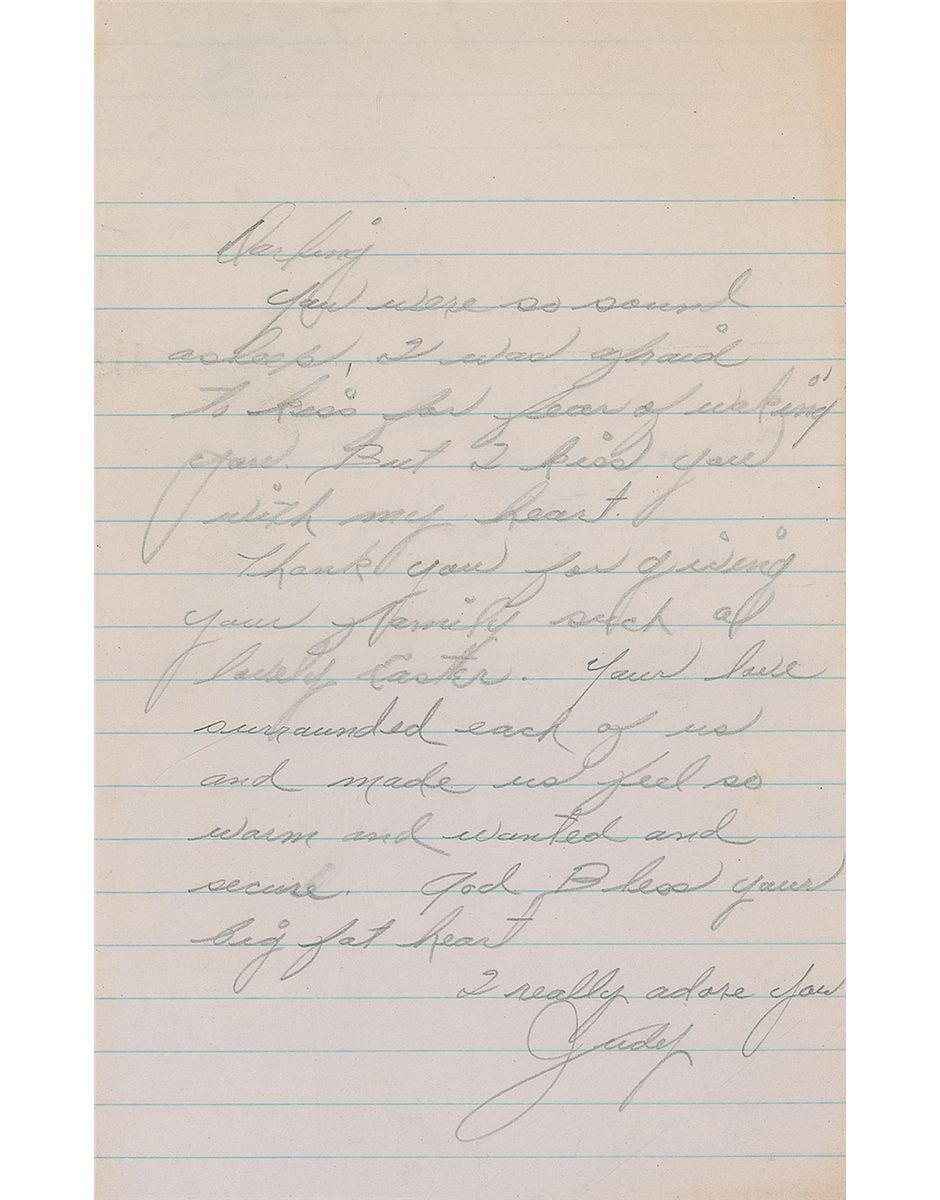 Darling
You were so sound
asleep, I was afraid
to kiss for fear of waking
you. But I kiss you
with my heart.
Thank you for giving
your family such a
lovely Easter. Your love
surrounded each of us
and made us feel so
warm and wanted and
secure. God Bless your
big fat heart
I really adore you
Judy